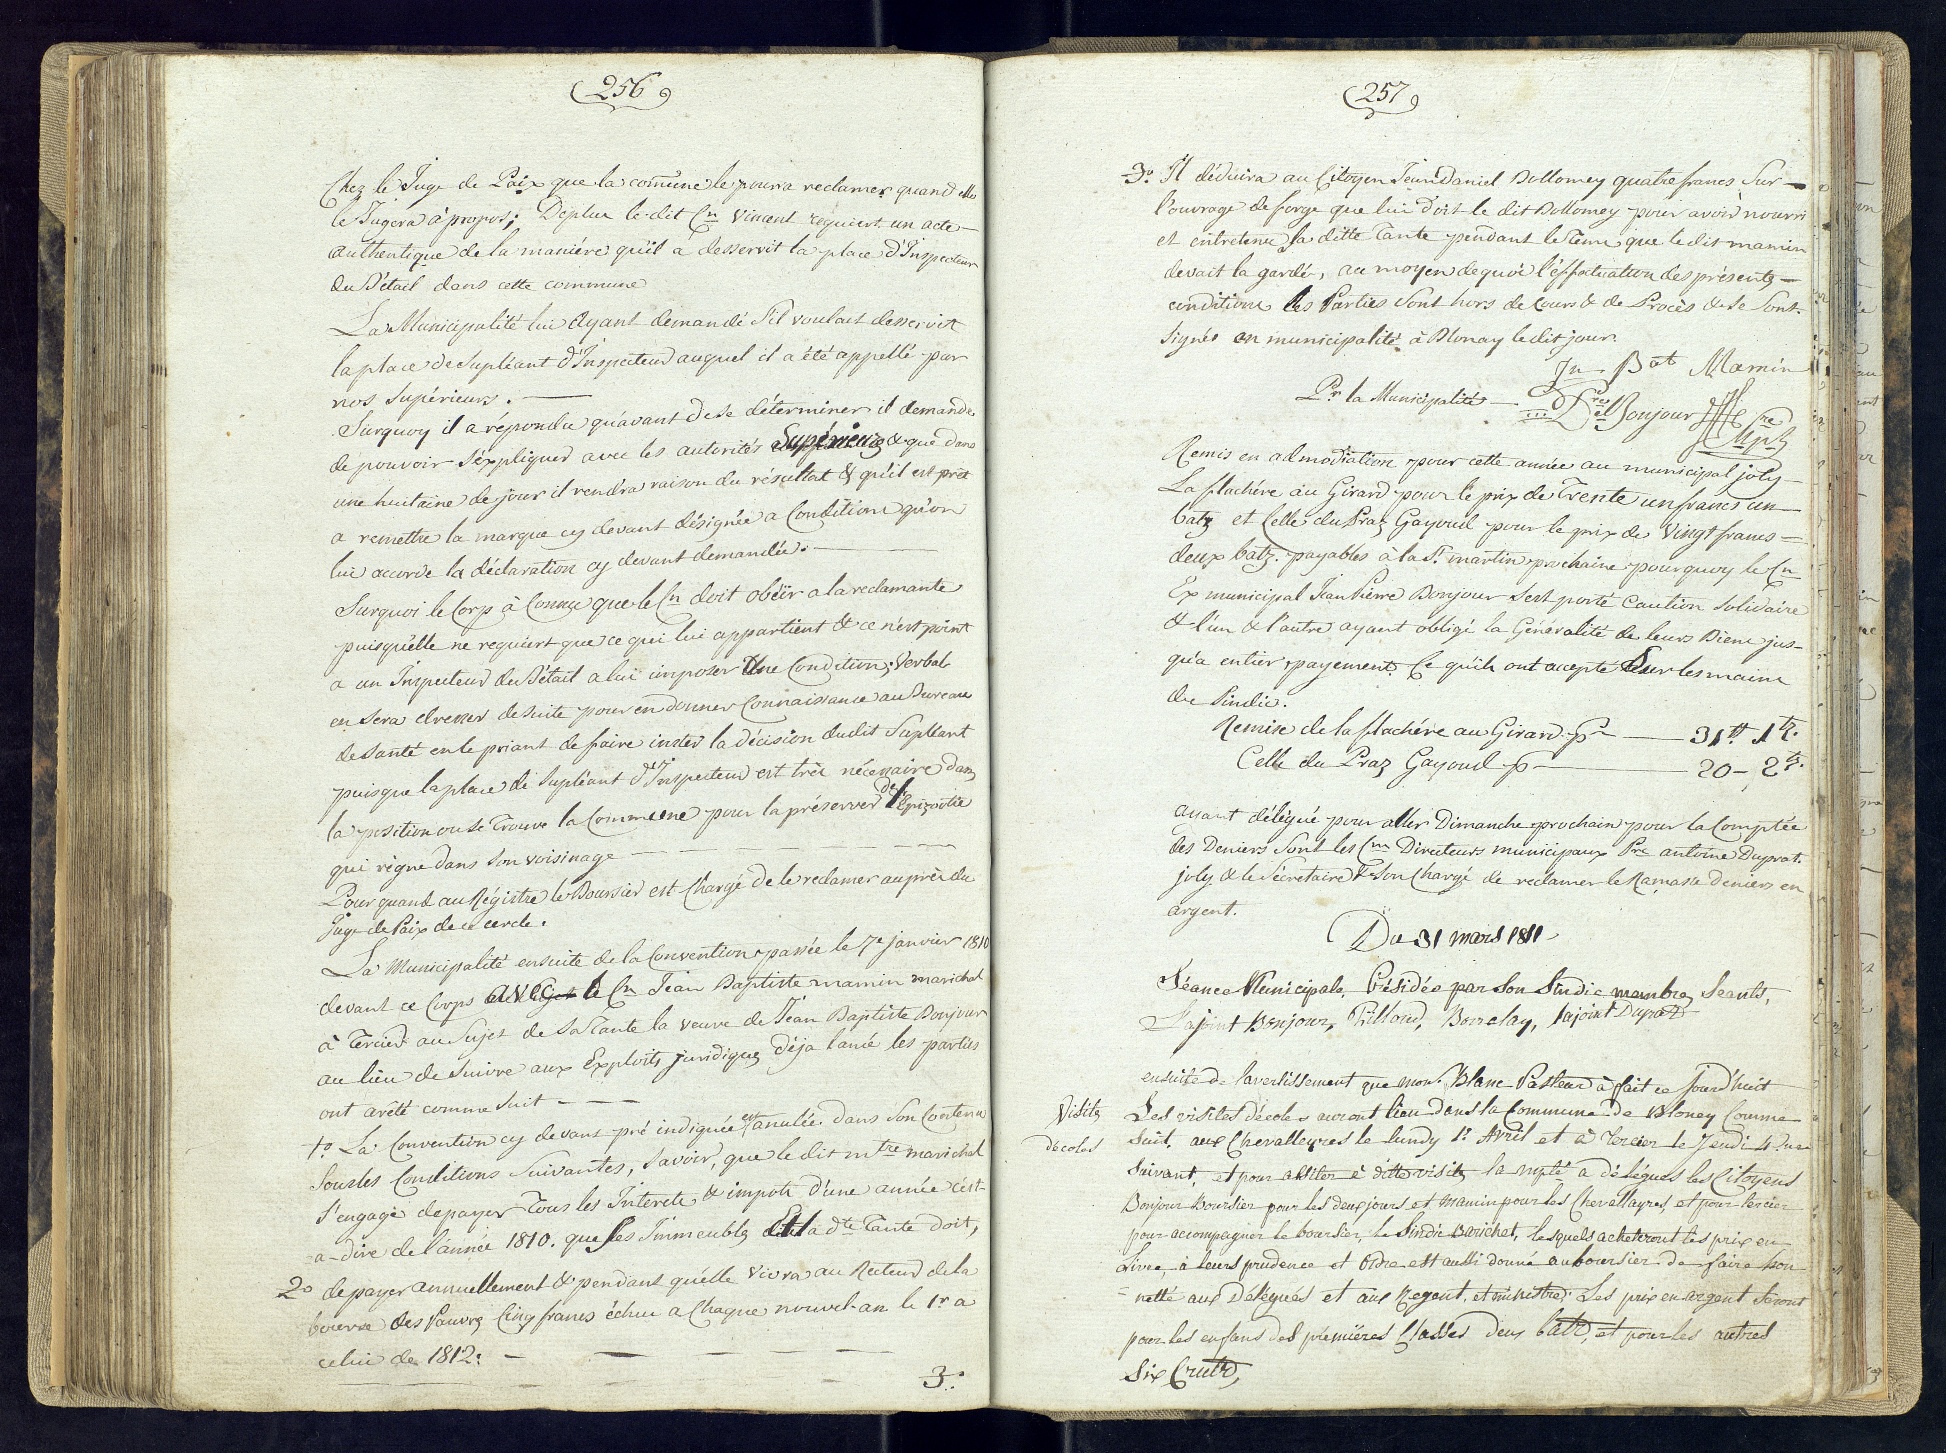 256
Chez le Juge de Paix que la commune le poura reclamer quand elle
le Jugera à propos; Deplus le dit Cn Vincent requiert un acte
authentique de la maniére qu'il a desservit la place d'Inspecteur
du Bétail dans cette commune
La Municipalité lui ayant demandé s'il voulait desservir
la place de Supléant d'Inspecteur auquel il a été appellé par
nos Supérieurs.
Surquoy il a répondu qu'avant de se déterminer il demande
de pouvoir s'éxpliquer avec les autorités Supérieures & que dans
une huitaine de jour il rendra raison du résultat & qu'il est prèt
a remettre la marque cy devant désignée a Condition qu'on
lui accorde la déclaration cy devant demandée.
Surquoi le Corps à Connu que le Cn doit obéïr a la reclamante
puisqu'elle ne requiert que ce qui lui appartient & ce n'est point
a un Inspecteur du Bétail a lui imposer Une Condition; Verbal
en sera dresser de suite pour en donner Connaissance au Bureau
de Santé en le priant de faire inster la décision dudit Supléant
puisque la place de Supléant d'Inspecteur est très nécessaire dans
la position ou se Trouve la Commune pour la préserver de l'Epizootie
qui règne dans son voisinage
Pour quand au Régistre le Boursier est Chargé de le reclamer auprès du
Juge de Paix de ce cercle.
La Municipalité ensuite de la Convention passée le 7e janvier 1810
devant ce Corps avec le Cn Jean Baptiste mamin marichal
à Tercier au Sujet de Sa Tante la veuve de Jean Baptiste Bonjour
au lieu de Suivre aux Exploits juridiques déja lancé les parties
ont arêté comme suit
1o La Convention cy devant pré indiquée est anulée dans Son Contenu
Sous les Conditions Suivantes, Savoir, que le dit mtre marichal
S'engage de payer Tous les Interets & impots d'une année c'est-
a-dire de l'année 1810. que les Immeubles de la dte Tante doit,
2o de payer annuellement & pendant qu'elle vivra au Recteur de la
bourse des Pauvres Cinq francs échus a Chaque nouvel-an le 1r a
celui de 1812:
3o.
257
3o. Il déduira au Citoyen Jean Daniel Dollomey quatre francs Sur
l'ouvrage de forge que lui doit le dit Dollomey pour avoir nourri
et entretenu la ditte Tante pendant le Tems que le dit mamin
devait la gardér, au moyen de quoi l'éffectuation des présentes
conditions les Parties Sont hors de Cours & de Procès & se Sont
Signés en municipalité à Blonay le dit jour.
Jn Bat Mamin
Pr la Municipalité Del Bonjour
Remis en admodiation pour cette année au municipal joly
La flachére au Girard pour le prix de Trente un francs un
batz et Celle du Praz Gayoud pour le prix de Vingt francs
deux batz. payables à la St. martin prochaine pourquoy le Cn
Ex municipal Jean Pierre Bonjour s'est porté Caution Solidaire
& l'un & l'autre ayant obligé la Généralité de leurs Biens jus-
qu'a entier payement Ce qu'ils ont accepté Sur les mains
du Sindic.
Remise de la flachére au Girard pr 31 tt 1 tz.
Celle du Praz Gayoud pr 20 - 2 tz.
ayant délégué pour aller Dimanche prochain pour la Comptée
des Deniers Sont les Cns Directeurs municipaux Pre antoine Dupraz.
joly & le Sécretaire & Son Chargé de reclamer le Ramasse deniers en
argent.
Du 31 mars 1811
Séance Municipale, Présidée par Son Sindic membres Seants,
l'ajoint Bonjour, Pilloud, Bourclay, l'ajoint Dupraz
ensuite de l'avertissement que mons. Blanc Pasteur à fait ce Jourd'huit
Visites
décoles
Les visites décoles auront lieu dans la Commune de Bloney Comme
Suit, aux Chevalleyres le lundy 1r. Avril et à Tercier le Jeudi 4 du
Suivant, et pour assister à ditte visites la mplé a délégués les Citoyens
Bonjour Boursier pour les deux jours et mamin pour les Chevalleyres, et pour Tercier
pour accompagner le boursier, le Sindic Barichet, lesquels acheteront les prix en
Livre, à leurs prudence et Ordre est aussi donné au boursier de faire hon
nette aux Délégués et aux Regent, et ministres. Les prix en argent Seront
pour les enfans des premières Classes deux batz, et pour les autres
Six Crutz,